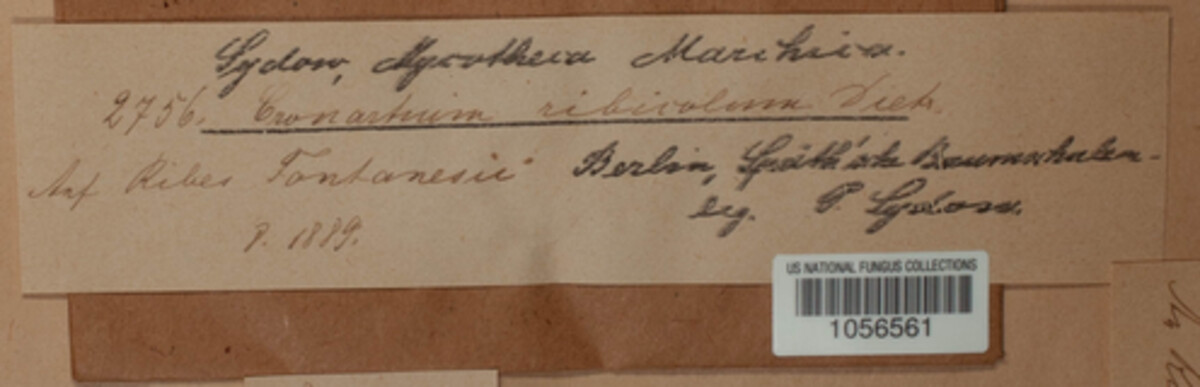 Sydow, Mycotheca Marchica.
2756. Cronartium ribicolum Dietr.
Auf Ribes Fontanesii Berlin, Späth'sche Baumschulen.
8. 1889. leg. P. Sydow.
US NATIONAL FUNGUS COLLECTIONS
1056561